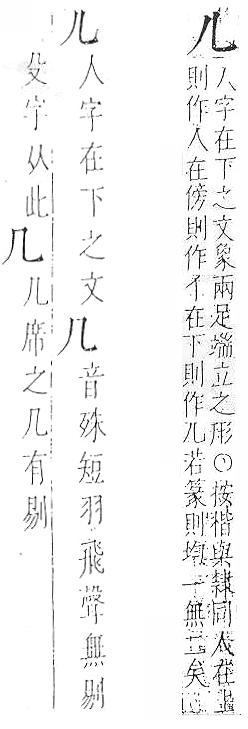 儿人字在下之文象兩足端立之形○按楷與隸同人在上
則作人在傍則作亻在下則作儿若篆則均一無二矣
儿人字在下之文𠘧音殊短羽飛聲無剔
殳字从此几几席之几有剔